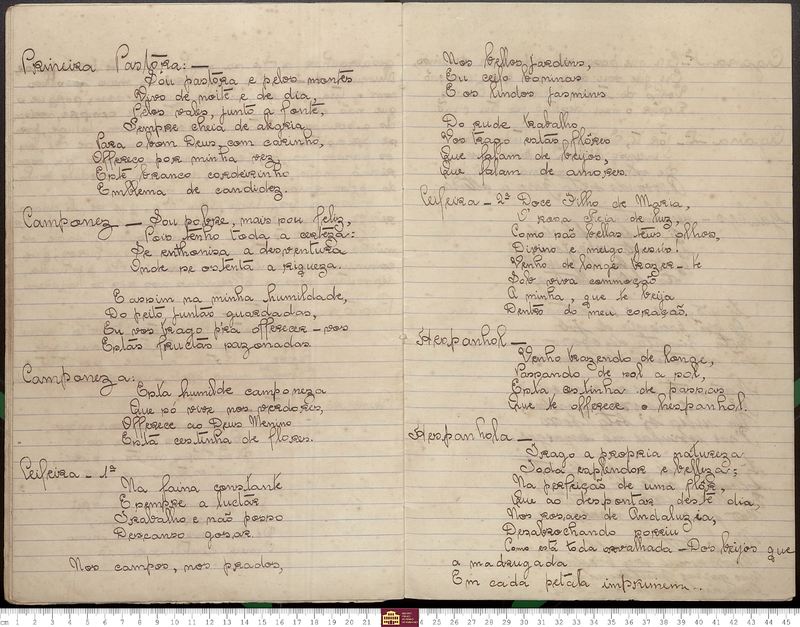 Primeira Pastôra: —
Sou pastôra e pelos montes
Vivo de noite e de dia,
Pelos vales, junto a fonte,
Sempre cheia de alegria
Para o bom Deus, com carinho,
Offereço por minha vez,
Este branco cordeirinho
Emblema de candidez.
Camponez — Sou pobre, mais sou feliz,
Pois tenho toda a certeza:
Se enthronisa a desventura
Onde se ostenta a riqueza.
E assim na minha humildade,
Do peito, juntas guardadas,
Eu vos trago p'ra offerecer-vos
Estas fructas sazonadas.
Camponeza:
Esta humilde camponeza
Que só vive nos verdores,
Offerece ao Deus Menino
Esta cestinha de flores.
Ceifeira — 1ª
Na faina constante
E sempre a luctar
Trabalho e não posso
Descanso gosar.
Nos campos, nos prados,
Nos bellos jardins,
Eu ceifo boninas
E os lindos jasmins
Do rude trabalho
Vos trago estas flôres
Que falam de beijos,
Que falam de amores.
Ceifeira — 2ª Doce Filho de Maria,
O' rosa cheia de luz,
Como são bellos teus olhos,
Divino e meigo Jesus.
Venho de longe trazer-te
Sob viva commoção
A minha, que te beija
Dentro do meu coração.
Hespanhol —
Venho trazendo de longe,
Passando de sol a sol,
Esta cestinha de passas
Que te offerece o hespanhol.
Hespanhola —
Trago a propria natureza
Toda esplendor e belleza;
Na perfeição de uma flôr,
Que ao despontar deste dia,
Nos rosaes de Andaluzia,
Desabrochando sorriu
Como está toda orvalhada — Dos beijos que
a madrugada
Em cada petala imprimiu...
cm 1 2 3 4 5 6 7 8 9 10 11 12 13 14 15 16 17 18 19 20 21 24 25 26 27 28 29 30 31 32 33 34 35 36 37 38 39 40 41 42 43 44 45